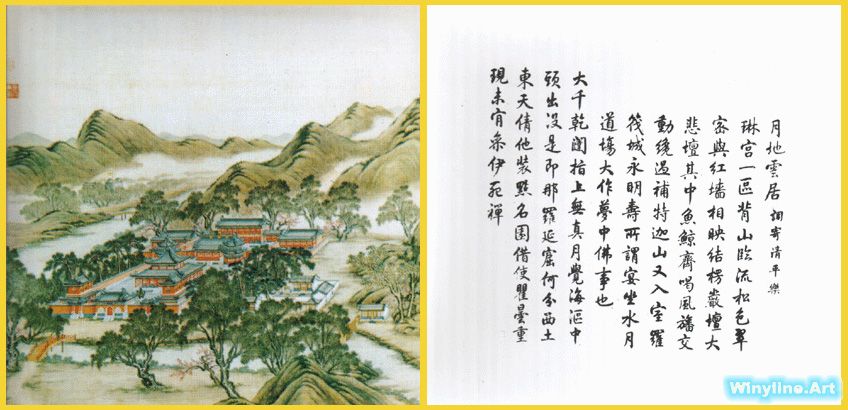 月地雲居 調寄清平樂
琳宮一區背山臨流松色翠
密與紅墻相映結楞嚴壇大
悲壇其中魚鯨齊喝風旛交
動纔過補特迦山又入室羅
筏城永明壽所謂宴坐水月
道場大作夢中佛事也
大千乾闥指上無真月覺海漚中
頭出没是即那羅延窟何分西土
東天倩他裝點名園借使瞿曇重
現未肎參伊死禪
Winyline.Art